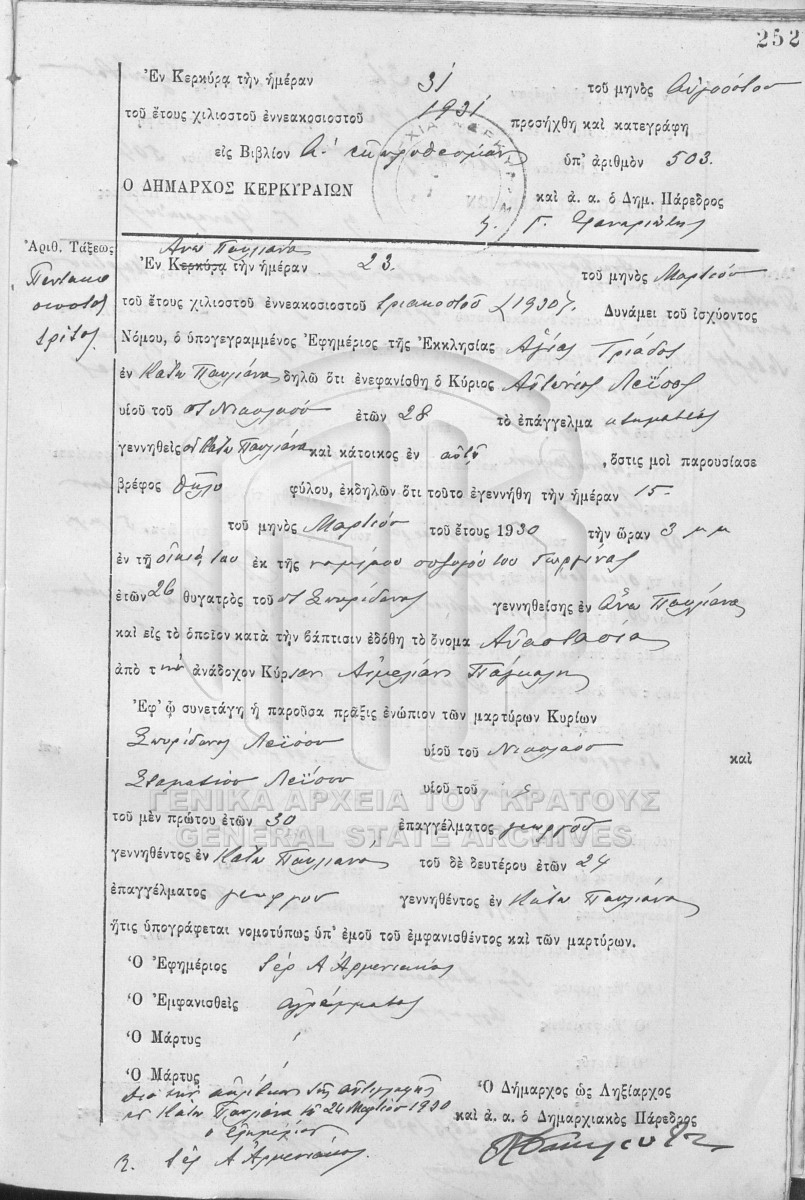 252
Ἐν Κερκύρᾳ τὴν ἡμέραν 31 τοῦ μηνὸς Αὐγούστου
τοῦ ἔτους χιλιοστοῦ ἐννεακοσιοστοῦ 1931 προσήχθη καὶ κατεγράφη
εἰς Βιβλίον Α.' ἐκπροθέσμων ὑπ' ἀριθμὸν 503.
Ο ΔΗΜΑΡΧΟΣ ΚΕΡΚΥΡΑΙΩΝ καὶ ἀ. α. ὁ Δημ. Πάρεδρος
Γ.
Ἀριθ. Τάξεως
Πεντακο
σιοστος
τρίτος
Ἄνω Παυλιάνα
Ἐν Κερκύρᾳ τὴν ἡμέραν 23. τοῦ μηνὸς Μαρτίου
τοῦ ἔτους χιλιοστοῦ ἐννεακοσιοστοῦ τριακοστοῦ (1930). Δυνάμει τοῦ ἰσχύοντος
Νόμου, ὁ ὑπογεγραμμένος Ἐφημέριος τῆς Ἐκκλησίας Ἁγίας Τριάδος
ἐν Κάτω Παυλιάνα δηλῶ ὅτι ἐνεφανίσθη ὁ Κύριος Ἀντώνιος Λεΐσος
υἱοῦ τοῦ Νικολάου ἐτῶν 28 τὸ ἐπάγγελμα κτηματίας
γεννηθεὶς Κάτω Παυλιάνα καὶ κάτοικος ἐν αὐτῇ, ὅστις μοὶ παρουσίασε
βρέφος θῆλυ φύλου, ἐκδηλῶν ὅτι τοῦτο ἐγεννήθη τὴν ἡμέραν 15.
τοῦ μηνὸς Μαρτίου τοῦ ἔτους 1930 τὴν ὥραν 3 μ μ
ἐν τῇ οἰκίᾳ του ἐκ τῆς νομίμου συζύγου του Γεωργίνας
ἐτῶν 26 θυγατρὸς τοῦ Σπυρίδωνος γεννηθείσης ἐν Ἄνω Παυλιάνα
καὶ εἰς τὸ ὁποῖον κατὰ τὴν βάπτισιν ἐδόθη τὸ ὄνομα Ἀναστασία
ἀπὸ τὴν ἀνάδοχον Κύριαν Αἰμιλίαν
Ἐφ' ᾧ συνετάγη ἡ παροῦσα πρᾶξις ἐνώπιον τῶν μαρτύρων Κυρίων
Σπυρίδωνος Λεΐσου υἱοῦ τοῦ Νικολάου καὶ
Σταματίου Λεΐσου υἱοῦ τοῦ
ΓΕΝΙΚΑ ΑΡΧΕΙΑ ΤΟΥ ΚΡΑΤΟΥΣ
τοῦ μὲν πρώτου ἐτῶν 30 ἐπαγγέλματος γεωργοῦ
GENERAL STATE ARCHIVES
γεννηθέντος ἐν Κάτω Παυλιάνα τοῦ δὲ δευτέρου ἐτῶν 24
ἐπαγγέλματος γεωργοῦ γεννηθέντος ἐν Κάτω Παυλιάνα
ἥτις ὑπογράφεται νομοτύπως ὑπ' ἐμοῦ τοῦ ἐμφανισθέντος καὶ τῶν μαρτύρων.
Ὁ Ἐφημέριος ἱερ Α Ἀρμενιακός
Ὁ Ἐμφανισθεὶς ἀγράμματος
Ὁ Μάρτυς
Ὁ Μάρτυς
Διὰ τὴν ἀκρίβειαν τῆς ἀντιγραφῆς
ἐν Κάτω Παυλιάνα 24 Μαρτίου 1930
ὁ ἐφημέριος
ἱερ Α Ἀρμενιακός.
Ὁ Δήμαρχος ὡς Ληξίαρχος
καὶ ἀ. α. ὁ Δημαρχιακὸς Πάρεδρος